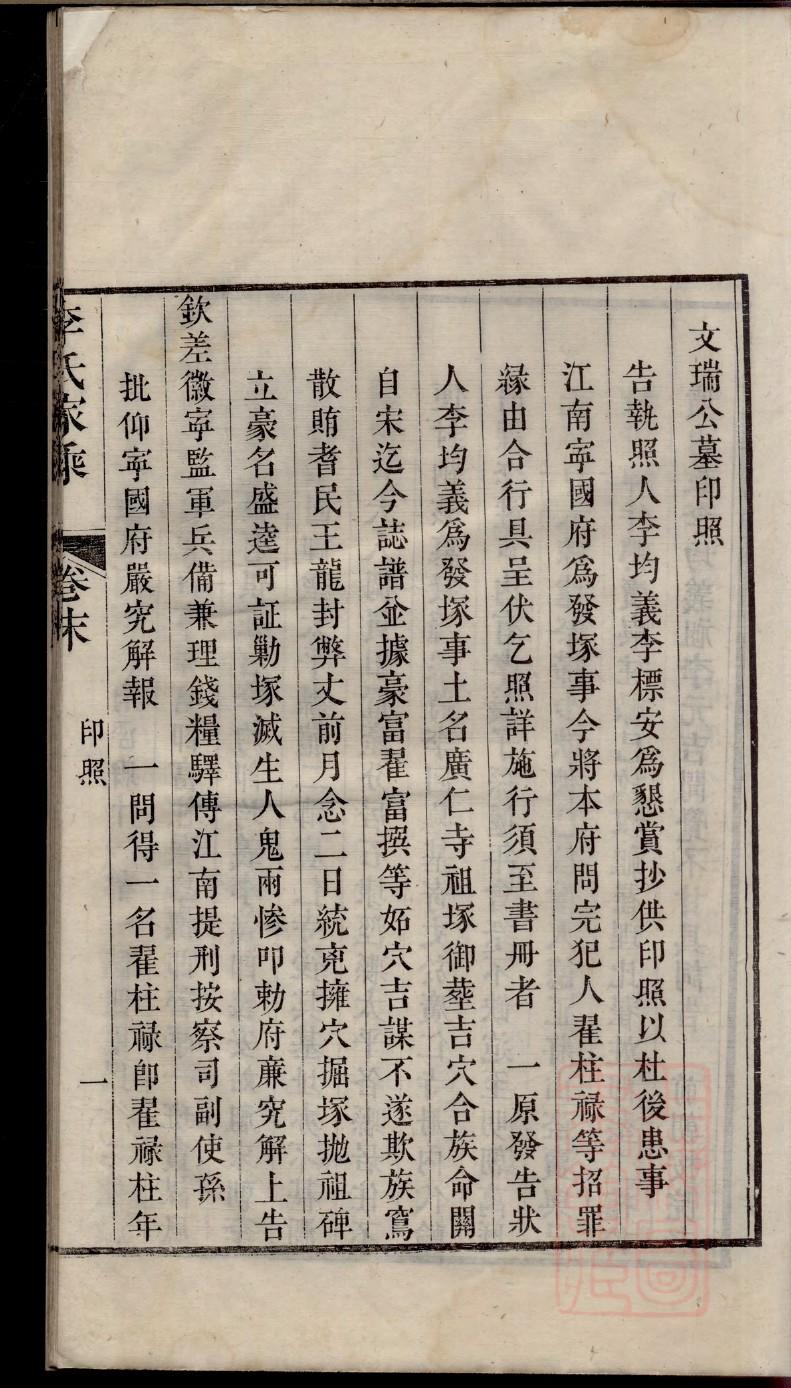 文瑞公墓印照
告執照人李均義李標安爲懇賞抄供印照以杜後患事
江南寧國府爲發塚事今將本府問完犯人翟柱祿等招罪
緣由合行具呈伏乞照詳施行須至書冊者　一原發告狀
人李均義爲發塚事土名廣仁寺祖塚御塟吉穴合族命關
自宋迄今誌譜並據豪富翟富撰等妬穴吉謀不遂欺族寫
散賄耆民王龍封弊丈前月念二日統兇擁穴掘塚拋祖碑
立豪名盛逹可証勦塚滅生人鬼兩慘叩勅府亷究解上告
欽差徽寧監軍兵備兼理錢糧驛傳江南提刑按察司副使孫
批仰寧國府嚴究解報　一問得一名翟柱祿卽翟祿柱年
李氏家乘　卷末　印照　一